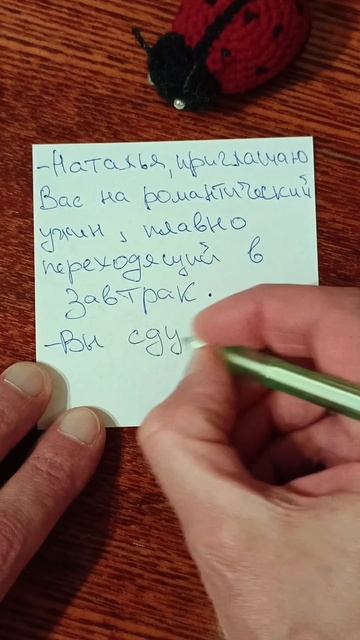 -Наталья, приглашаю
Вас на романтический
ужин, плавно
переходящий в
завтрак.
-Вы сду